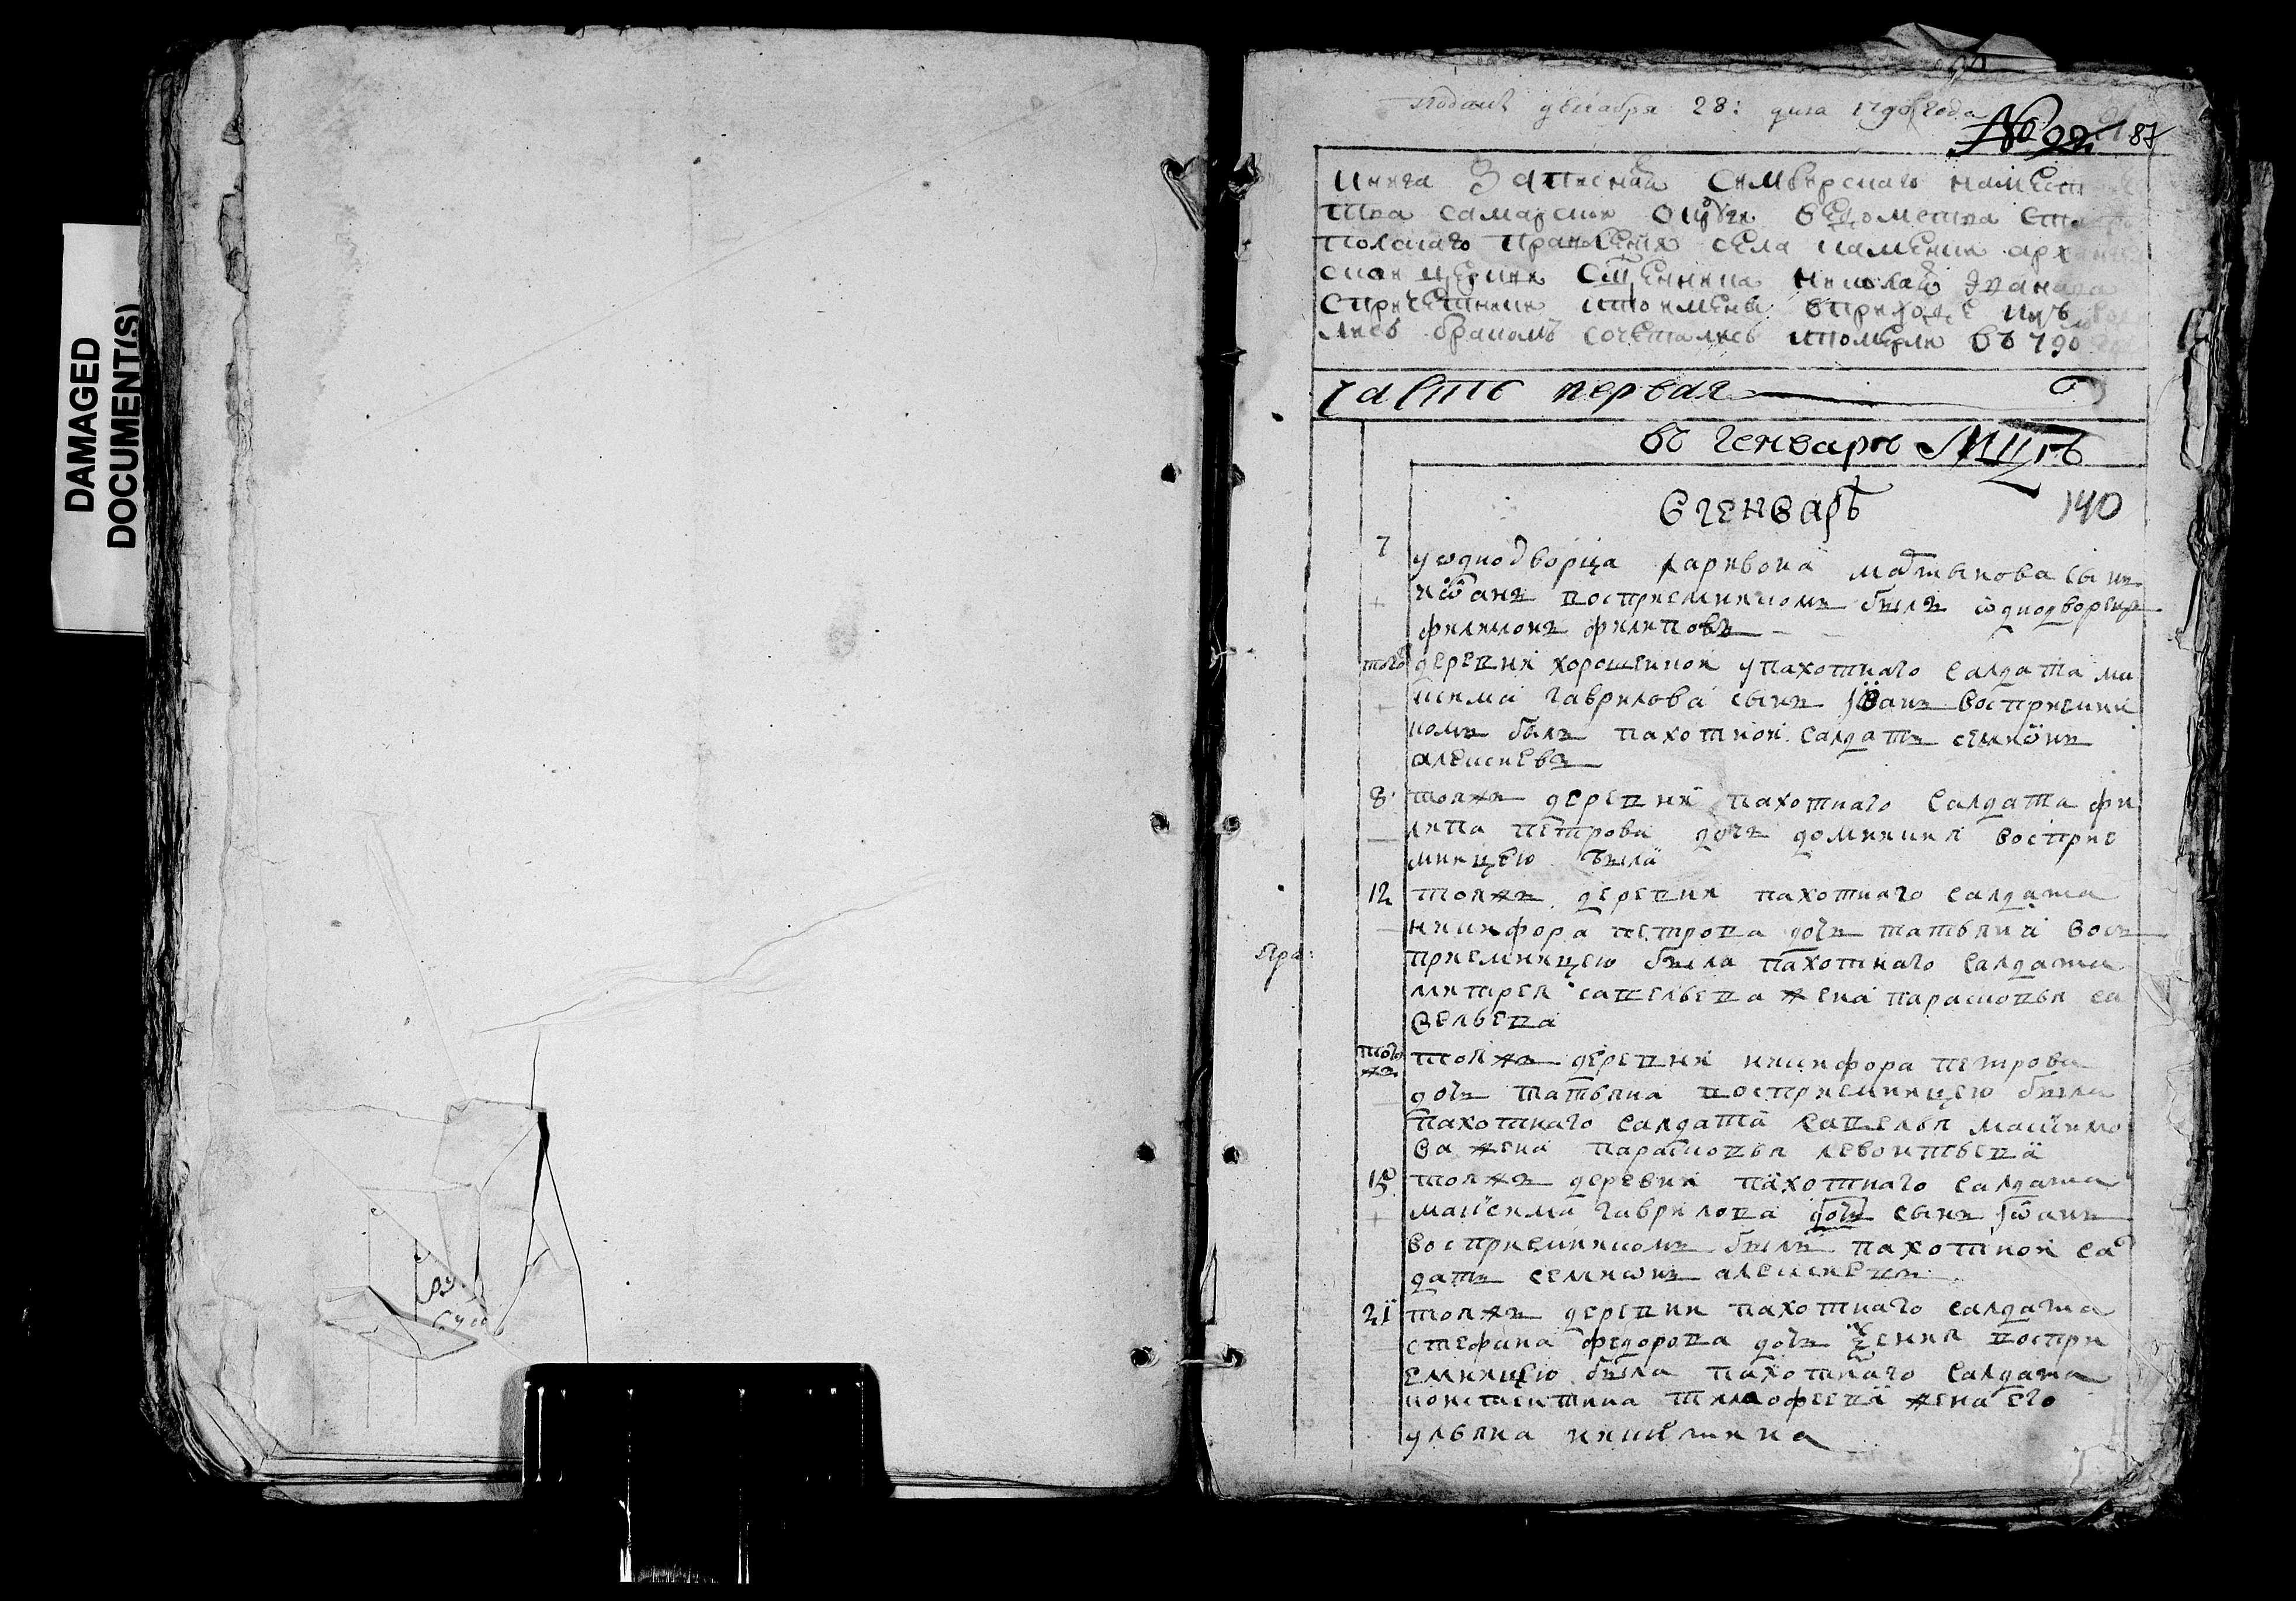 DAMAGED
DOCUMENT(S)
поданъ декабря 28: дня 1790 года
№ 22 87
книга Записная Симбирскаго намест
тва самарские округи ведомства ста
полскаго правленія села каменки арх
ские церкви сщенника николая Іванова
спричетники кто имены вприходе
лись бракомъ сочетались ипомерли въ 790
часть первая
въ генваре мцѣ
Вгенварѣ
140
7
уѡднодворца ларивона мартынова сынъ
иѡанъ восприемникомъ былъ ѡднодворецъ
филимонъ филиповъ
того деревни хорошенкой упахотнаго салдата ма
ксима гаврилова сынъ іѡанъ восприемни
комъ былъ пахотной салдатъ семиѡнъ
алексиевъ
8 тояжъ деревни пахотнаго салдата фи
липа петрова дочь домникия восприе
мницею была
12 тояжъ деревни пахотнаго салдата
никифора петрова дочь татьяна вос
приемницею была пахотнаго салдата
митрея савельева жена парасковья са
вельева
тогож тояжъ деревни никифора петрова
дочь татьяна восприемницею была
пахотнаго салдата савелья максимо
ва жена парасковья левонтьева
15 тояжъ деревни пахотнаго салдата
максима гаврилова дочь сынъ іѡанъ
восприемникомъ былъ пахотной сал
датъ семиѡнъ алексиевъ
21 тояжъ деревни пахотнаго салдата
стефана федорова дочь ѯения воспри
емницею была пахотнаго салдата
константина тимофеева жена его
ульяна никитина